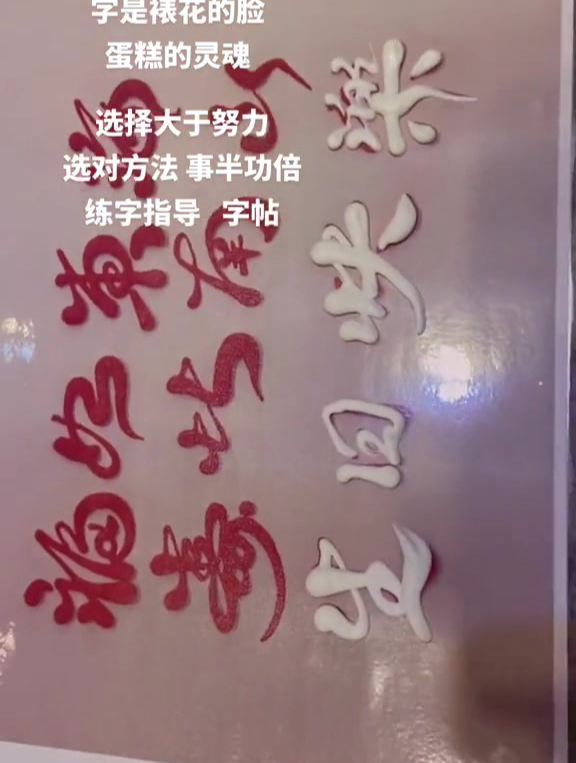 字是裱花的脸
蛋糕的灵魂
选择大于努力
选对方法 事半功倍
练字指导 字帖
福如東海
壽比南山
生日快樂